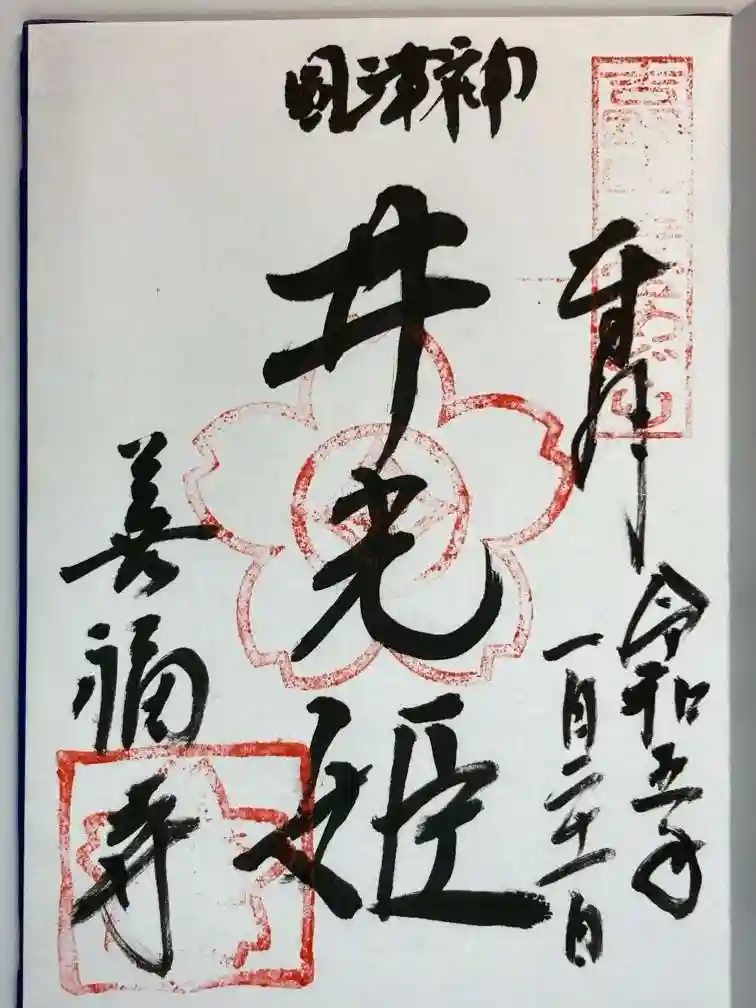 國津神
奉拝
令和五年
一月二十一日
井光姫
善福寺